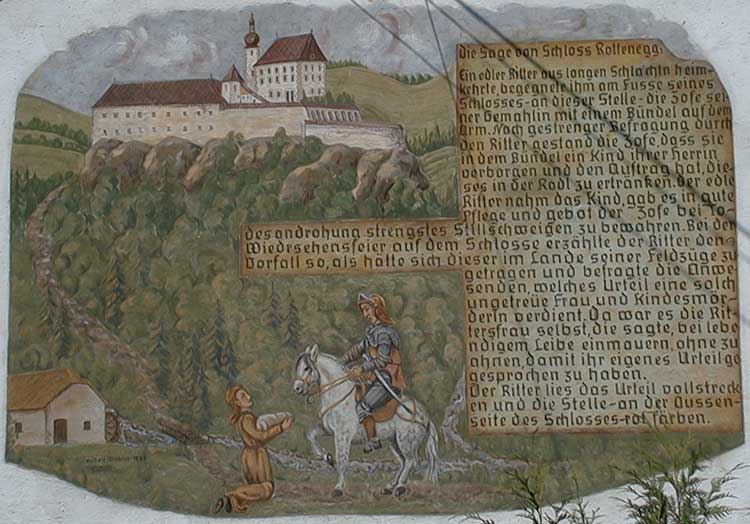 die Sage von Schloss Rottenegg:
Ein edler Ritter aus langen Schlachtn heim-
kehrte, begegnete ihm am Fusse seines
Schlosses - an dieser Stelle - die Zofe sei-
ner Gemahlin mit einem Bündel auf dem
Arm. Nach gestrenger Befragung durch
den Ritter gestand die Zofe, dass sie
in dem Bündel ein Kind ihrer Herrin
verborgen und den Auftrag hat, die-
ses in der Rodl zu ertränken. Der edle
Ritter nahm das Kind, gab es in gute
Pflege und gebot der Zofe bei To-
desandrohung strengstes Stillschweigen zu bewahren. Bei der
Wiedrsehensfeier auf dem Schlosse erzählte der Ritter den
Vorfall so, als hätte sich dieser im Lande seiner Feldzüge zu
getragen und befragte die Anwe-
senden, welches Urteil eine solch
ungetreüe Frau und Kindesmör-
derin verdient. Da war es die Rit-
tersfrau selbst, die sagte, bei lebe
ndigem Leibe einmauern, ohne zu
ahnen, damit ihr eigenes Urteil ge
gesprochen zu haben.
Der Ritter lies das Urteil vollstreck
en und die Stelle - an der Aussen-
seite des Schlosses - rot färben.